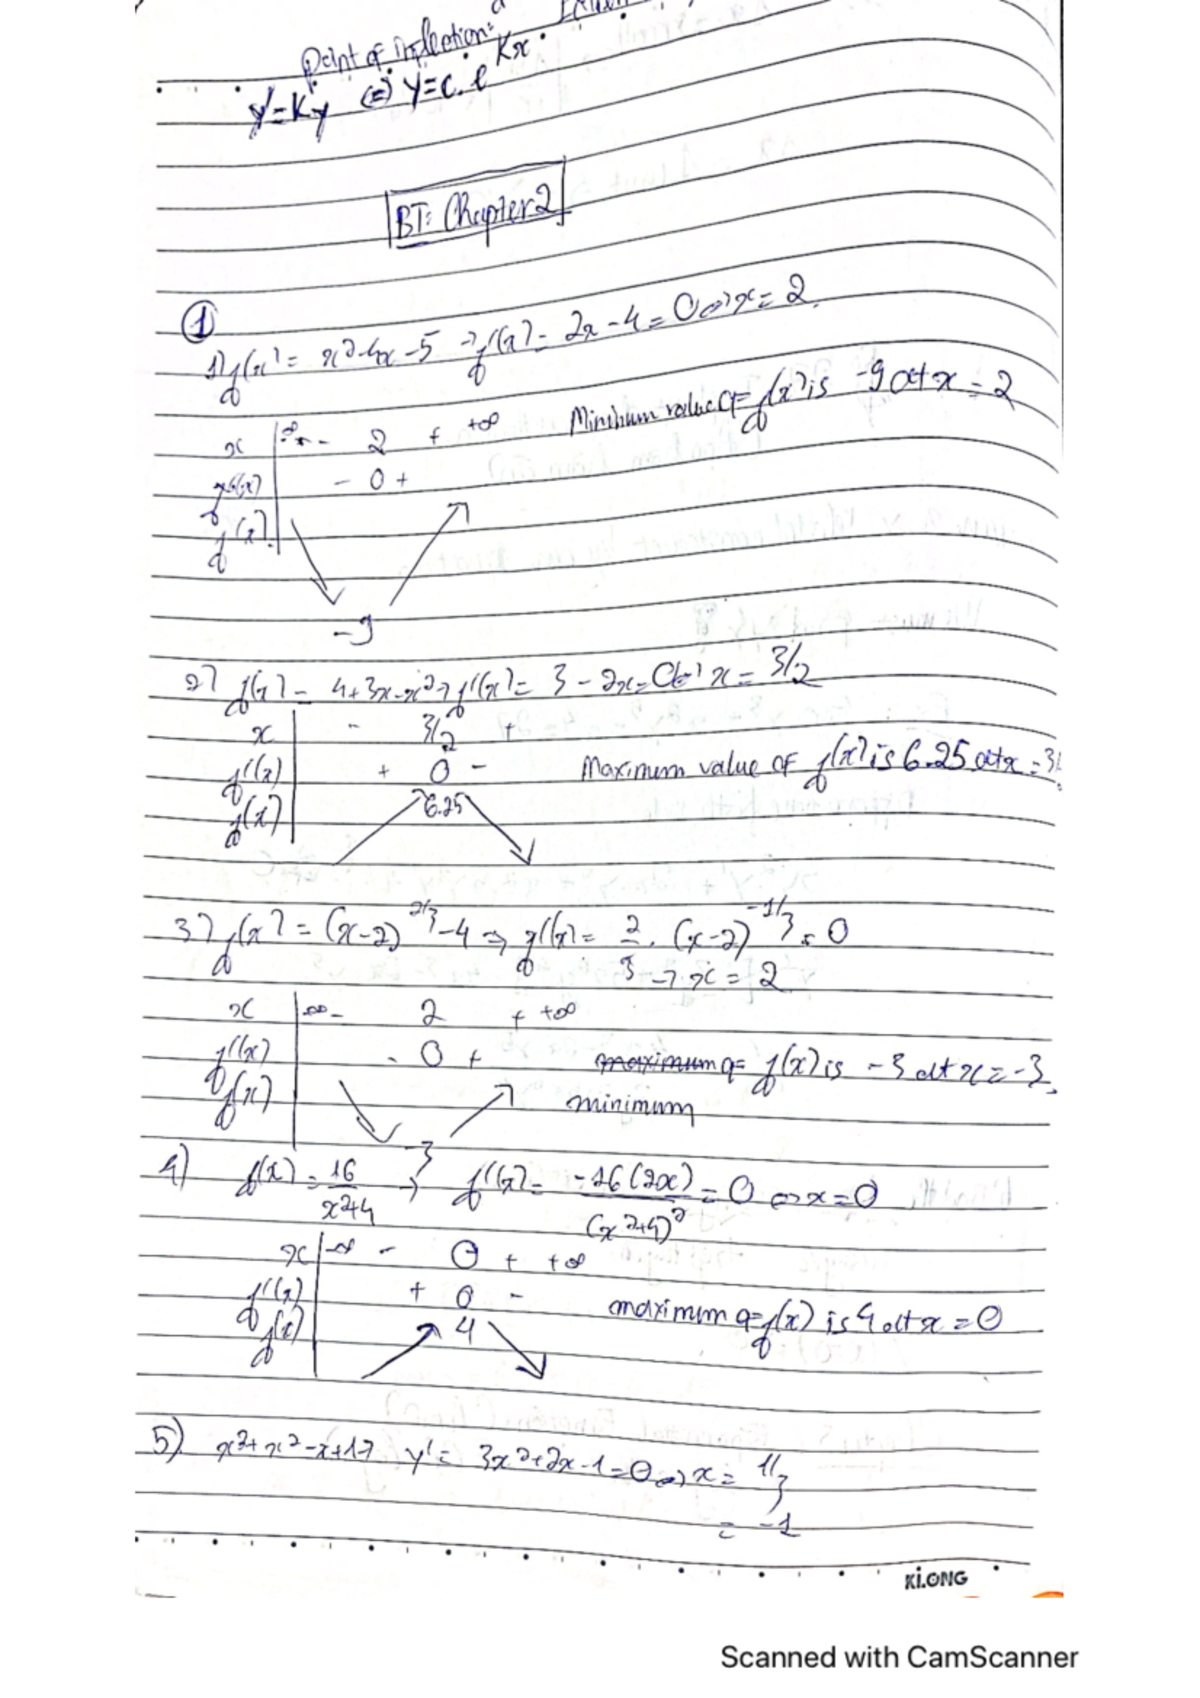 Point of inflection:
y'=Ky (=) y=c.e^Kx
BT: Chapter 2
①
1) f(x) = x²-4x-5 → f'(x) = 2x-4=0 ⇔ x=2
Minimum value of f(x) is -9 at x=2
x | -∞ - 2 + +∞
f'(x) - 0 +
f(x)
-9
2) f(x) = 4+3x-x² → f'(x) = 3-2x=0 ⇔ x = 3/2
x | - 3/2 +
f'(x) + 0 - Maximum value of f(x) is 6.25 at x = 3/
f(x) 6.25
3) f(x) = (x-2)^2/3 -4 ⇒ f'(x) = 2/3 . (x-2)^-1/3 = 0
→ x = 2
x | -∞ - 2 + +∞
f'(x) - 0 + maximum of f(x) is -3 at x = -3
f(x) minimum
-3
4) f(x) = 16/x²+4 → f'(x) = -16(2x)/(x²+4)² = 0 ⇔ x=0
x | -∞ - 0 + +∞
f'(x) + 0 - maximum of f(x) is 4 at x = 0
f(x) 4
5) x³+x²-x+17 y' = 3x²+2x-1=0 ⇔ x = 1/3
= -1
Ki.ONG
Scanned with CamScanner